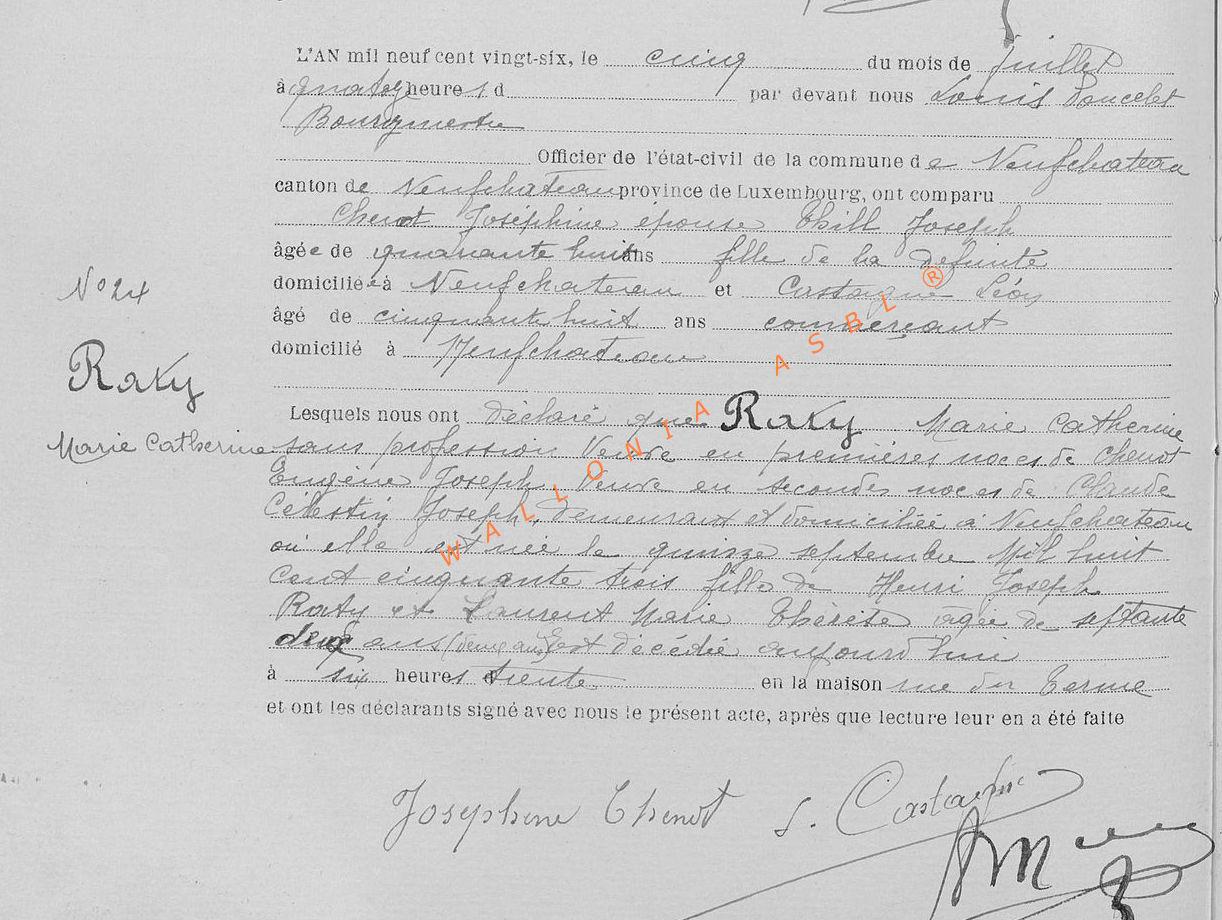 L'AN mil neuf cent vingt-six, le cinq du mois de juillet
à quatorze heures d par devant nous Louis Poncelet
Bourgmestre
Officier de l'état-civil de la commune de Neufchateau
canton de Neufchateau province de Luxembourg, ont comparu
Chenot Joséphine épouse Thill Joseph
âgée de quarante huit ans fille de la défunte
domiciliée à Neufchateau et Castagne Léon
N° 24
âgé de cinquante huit ans commerçant
domicilié à Neufchateau
Raty
Lesquels nous ont déclaré que Raty Marie Catherine
Marie Catherine
sans profession Veuve en premières noces de Chenot
Eugène Joseph, Veuve en secondes noces de Claude
Célestin Joseph, demeurant et domiciliée à Neufchateau
où elle est née le quinze septembre Mil huit
cent cinquante trois fille de Henri Joseph
Raty et Laurent Marie Thérèse âgée de septante
deux ans (deux ans) est décédée aujourd'hui
à six heures trente en la maison rue du Terme
et ont les déclarants signé avec nous le présent acte, après que lecture leur en a été faite
Joséphine Chenot L. Castagne
WALLONIA ASBL ®